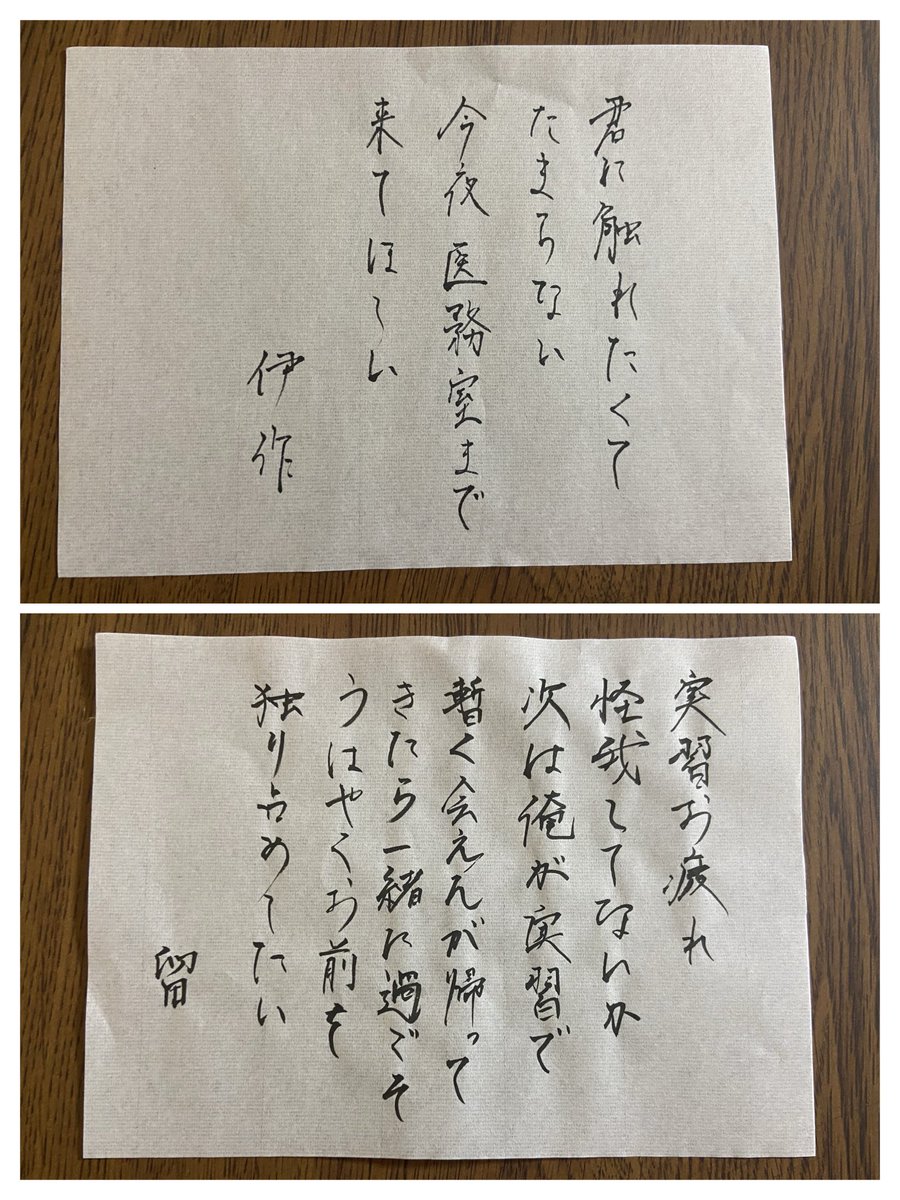 君に触れたくて
たまらない
今夜医務室まで
来てほしい
伊作
実習お疲れ
怪我してないか
次は俺が実習で
暫く会えんが帰って
きたら一緒に過ごそ
うはやくお前を
独り占めしたい
留